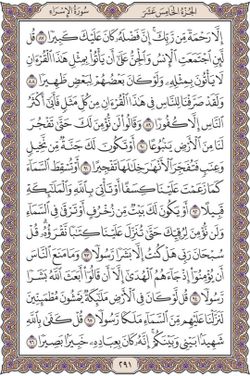 سُورَةُ الإِسْرَاءِ الجُزْءُ الخَامِسَ عَشَرَ
إِلَّا رَحْمَةً مِّن رَّبِّكَ إِنَّ فَضْلَهُۥ كَانَ عَلَيْكَ كَبِيرًا ٨٧ قُل
لَّئِنِ ٱجْتَمَعَتِ ٱلْإِنسُ وَٱلْجِنُّ عَلَىٰٓ أَن يَأْتُوا۟ بِمِثْلِ هَـٰذَا ٱلْقُرْءَانِ
لَا يَأْتُونَ بِمِثْلِهِۦ وَلَوْ كَانَ بَعْضُهُمْ لِبَعْضٍ ظَهِيرًا ٨٨
وَلَقَدْ صَرَّفْنَا لِلنَّاسِ فِى هَـٰذَا ٱلْقُرْءَانِ مِن كُلِّ مَثَلٍ فَأَبَىٰٓ أَكْثَرُ
ٱلنَّاسِ إِلَّا كُفُورًا ٨٩ وَقَالُوا۟ لَن نُّؤْمِنَ لَكَ حَتَّىٰ تَفْجُرَ
لَنَا مِنَ ٱلْأَرْضِ يَنۢبُوعًا ٩٠ أَوْ تَكُونَ لَكَ جَنَّةٌ مِّن نَّخِيلٍ
وَعِنَبٍ فَتُفَجِّرَ ٱلْأَنْهَـٰرَ خِلَـٰلَهَا تَفْجِيرًا ٩١ أَوْ تُسْقِطَ ٱلسَّمَآءَ
كَمَا زَعَمْتَ عَلَيْنَا كِسَفًا أَوْ تَأْتِىَ بِٱللَّهِ وَٱلْمَلَـٰٓئِكَةِ
قَبِيلًا ٩٢ أَوْ يَكُونَ لَكَ بَيْتٌ مِّن زُخْرُفٍ أَوْ تَرْقَىٰ فِى ٱلسَّمَآءِ
وَلَن نُّؤْمِنَ لِرُقِيِّكَ حَتَّىٰ تُنَزِّلَ عَلَيْنَا كِتَـٰبًا نَّقْرَؤُهُۥ قُلْ
سُبْحَانَ رَبِّى هَلْ كُنتُ إِلَّا بَشَرًا رَّسُولًا ٩٣ وَمَا مَنَعَ ٱلنَّاسَ
أَن يُؤْمِنُوٓا۟ إِذْ جَآءَهُمُ ٱلْهُدَىٰٓ إِلَّآ أَن قَالُوٓا۟ أَبَعَثَ ٱللَّهُ بَشَرًا
رَّسُولًا ٩٤ قُل لَّوْ كَانَ فِى ٱلْأَرْضِ مَلَـٰٓئِكَةٌ يَمْشُونَ مُطْمَئِنِّينَ
لَنَزَّلْنَا عَلَيْهِم مِّنَ ٱلسَّمَآءِ مَلَكًا رَّسُولًا ٩٥ قُلْ كَفَىٰ بِٱللَّهِ
شَهِيدًۢا بَيْنِى وَبَيْنَكُمْ إِنَّهُۥ كَانَ بِعِبَادِهِۦ خَبِيرًۢا بَصِيرًا ٩٦
٢٩١